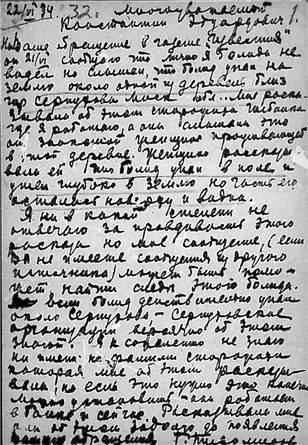 22/VI 34 32. Многоуважаемый
Константин Эдуардович!
На Ваше обращение в газете "Известия"
от 21/VI сообщаю что лично я болида не
видел но слышал, что болид упал на
землю около одной из деревень близ
гор Серпухова Моск. обл. Мне расска-
зывала об этом сторожиха
где я работаю, а она слышала это
от знакомой женщины проживающей
в этой деревне. Женщина рассказы-
вала ей, что болид упал в поле и
ушел глубоко в землю но часть его
осталась наружу и видна.
Я ни в какой степени не
отвечаю за правдивость этого
рассказа но мое сообщение, (если
Вы не имеете сообщения из другого
источника) может быть помо-
жет найти следы этого болида.
Если болид действительно упал
около Серпухова - Серпуховские
организации вероятно об этом
знают. Я к сожалению не знаю
ни имени ни фамилии сторожихи
которая мне об этом расска-
зывала, но если это нужно это конечно
можно установить - она работает
в и сейчас. Рассказывала мне
она об этом болиде до появления
Вашего обращения.